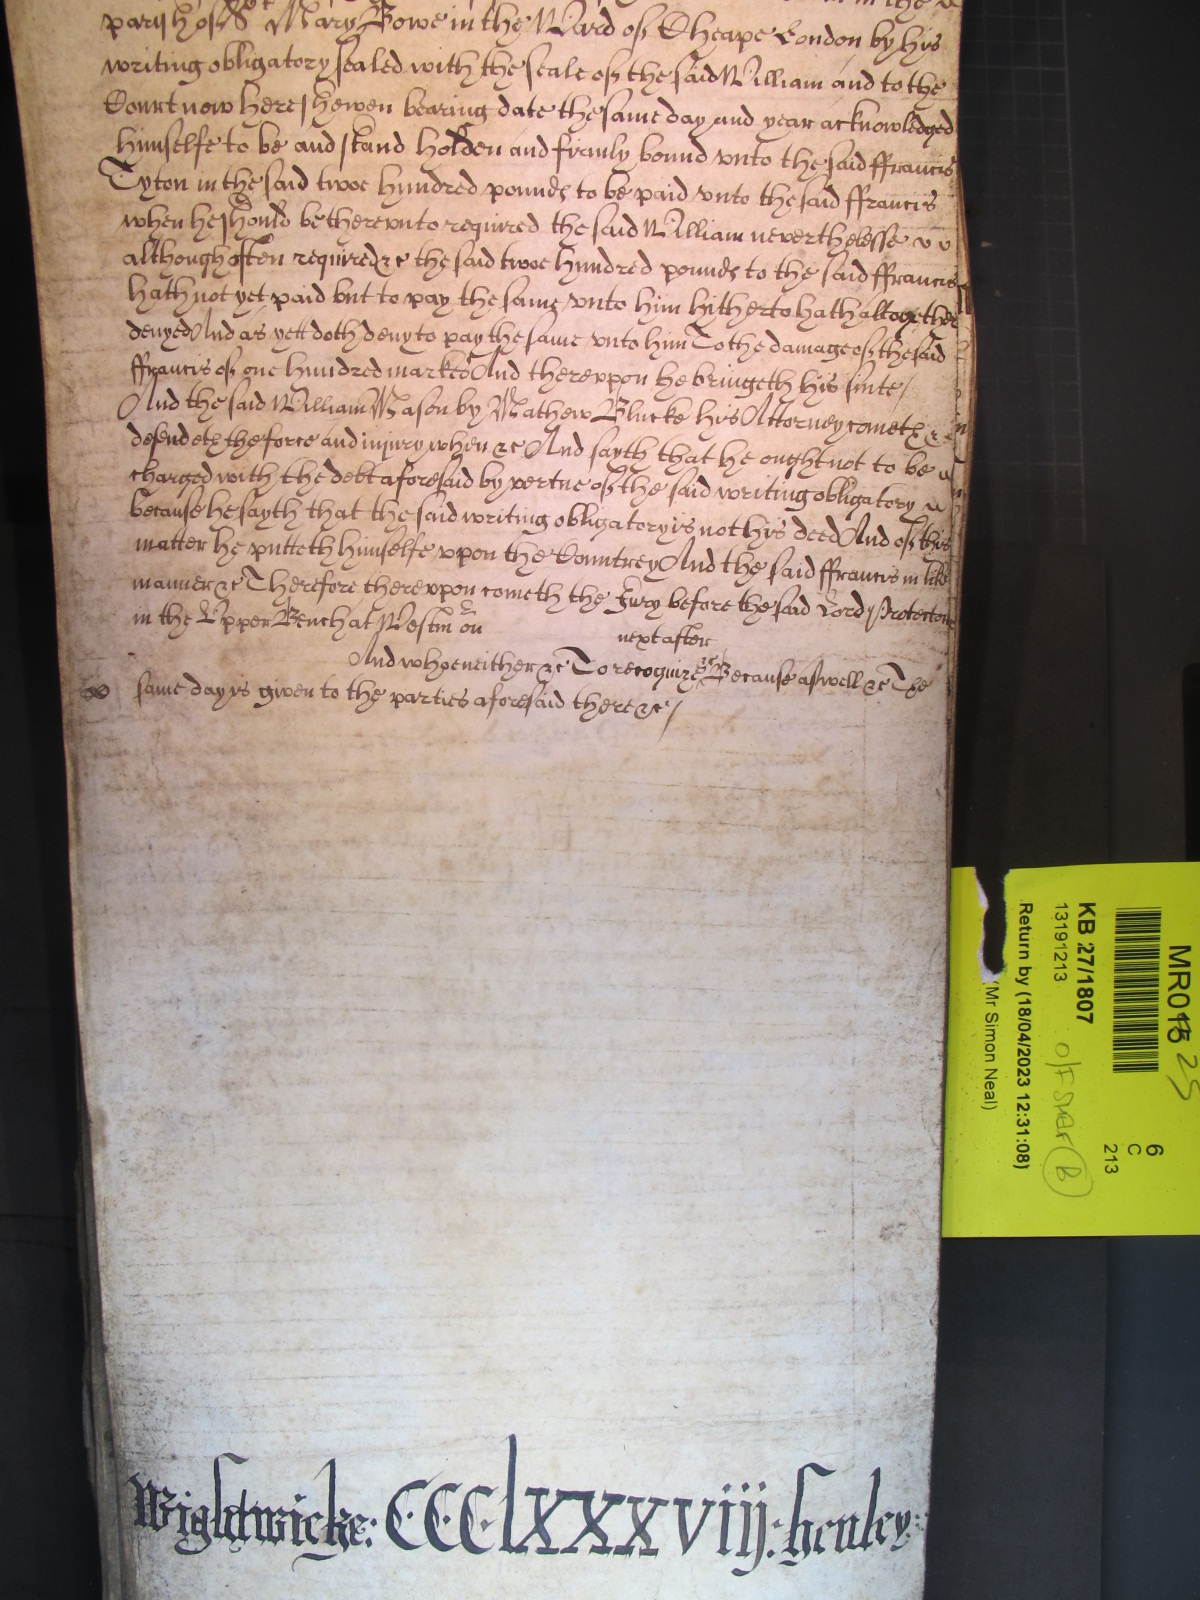 parish of St Mary Bowe in the Ward of Cheape London by his
writing obligatory sealed with the seale of the said William and to the
Court now here shewen bearing date the same day and year acknowledged
himselfe to be and stand holden and firmly bound vnto the said ffrancis
Tyton in the said twoe hundred pounds to be paid vnto the said ffrancis
when he should be therevnto required the said William neverthelesse
although often required &c the said twoe hundred pounds to the said ffrancis
hath not yet paid but to pay the same vnto him hitherto hath altogether
denyed And as yett doth deny to pay the same vnto him To the damage of the said
ffrancis of one hundred markes And therevpon he bringeth his suite /
And the said William Mason by Mathew Blucke his Attorney cometh &c
defendeth the force and injury when &c And sayth that he ought not to be
charged with the debt aforesaid by vertue of the said writing obligatory
because he sayth that the said writing obligatory is not his deed And of this
matter he putteth himselfe vpon the Countrey And the said ffrancis in like
manner &c Therefore therevpon cometh the Jury before the said Lord Protector
in the Upper Bench at Westm on
next after
And whoe neither &c To recognize &c Because aswell &c The
same day is given to the parties aforesaid there &c /
Wightwicke: CCClxxxviij: henley:
MR015
25
6
C
213
KB 27/1807
13191213
O/F Smaf (B)
Return by (18/04/2023 12:31:08)
(Mr Simon Neal)